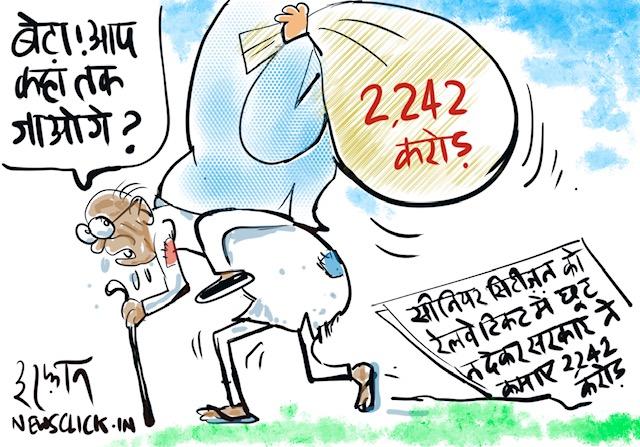 बेटा! आप
कहां तक
जाओगे?
2,242
करोड़
सीनियर सिटीजन को
रेलवे टिकट में छूट
न देकर सरकार ने
कमाए 2242
करोड़
इरफ़ान
NEWSCLICK.IN